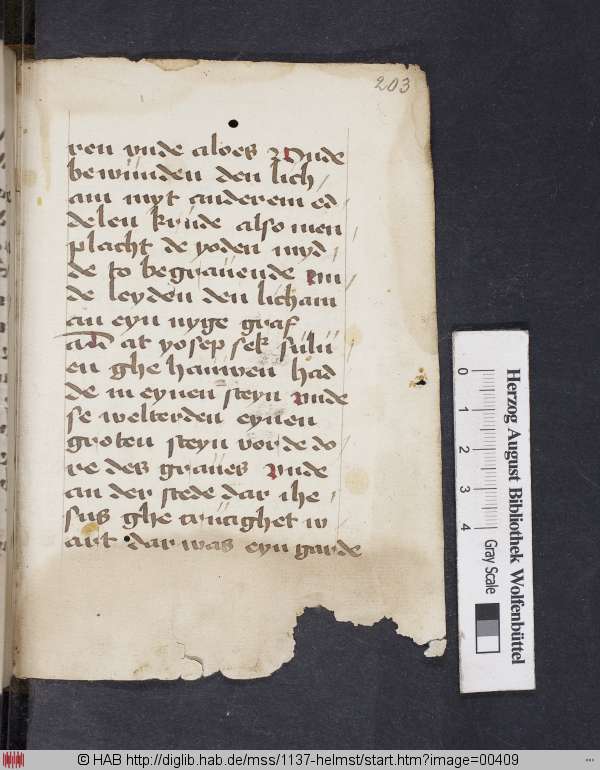 203
ren vnde aloes Vnde
bewunden den lich
am myt anderem ed
delen krude also men
placht de yoden myd
de to begrauende vn
de leyden den licham
an eyn nyge graf
at yosep sek sulu
en ghe hauwen had
de in eynen steyn vnde
se welterden eynen
groten steyn vor de do
re des graues vnde
an der stede dar ihe
sus ghe crucighet w
art dar was eyn garde
Herzog August Bibliothek Wolfenbüttel
0 1 2 3 4 Gray Scale
© HAB http://diglib.hab.de/mss/1137-helmst/start.htm?image=00409